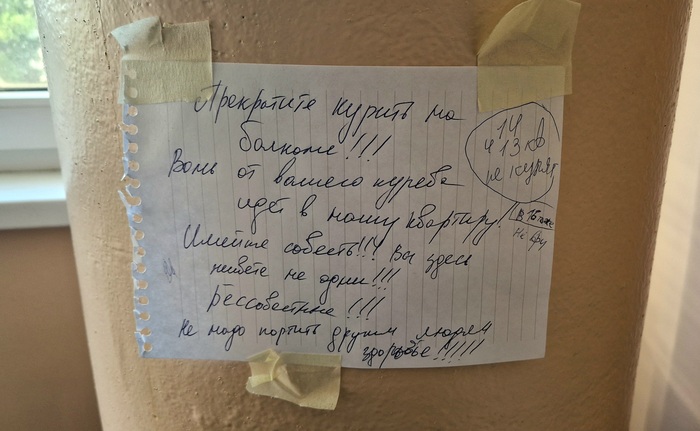 Прекратите курить на
балконе!!!
Вонь от вашего курева
идёт в нашу квартиру!
Имейте совесть!!! Вы здесь
живёте не одни!!!
Бессовестные!!!
Не надо портить другим людям
здоровье!!!!!!
14
и 13 кв
не курят
в 16 тоже
не